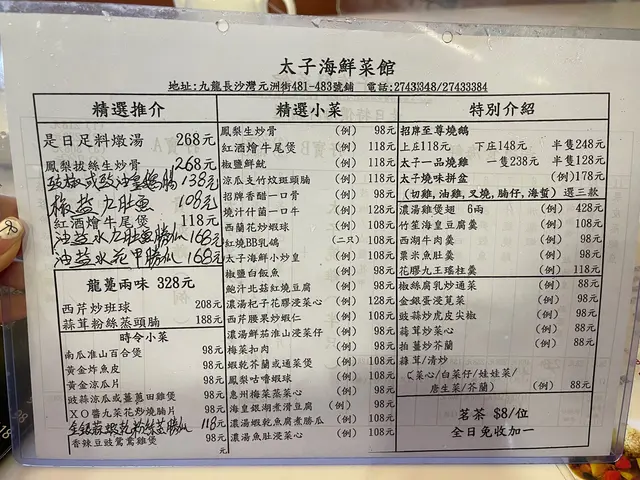 太子海鮮菜館
地址:九龍長沙灣元洲街481-483號鋪 電話:27433348/27433384
精選推介
是日足料燉湯 268元
鳳梨拔絲生炒骨 268元
豉椒或豉油皇鵝腸 138元
椒鹽九肚魚 108元
紅酒燴牛尾煲 118元
油鹽水九肚魚勝仙 168元
油鹽水花甲勝仙 168元
龍躉兩味 328元
西芹炒班球 208元
蒜茸粉絲蒸頭腩 188元
時令小菜
南瓜淮山百合煲 98元
黃金炸魚皮 98元
黃金涼瓜片 98元
豉蒜涼瓜或薑蔥田雞煲 98元
XO醬九菜花炒燒腩片 98元
金銀蒜蝦乾粉絲蒸勝仙 118元
香辣豆豉鴛鴦雞煲 98元
精選小菜
鳳梨生炒骨 (例) 98元
紅酒燴牛尾煲 (例) 118元
椒鹽鮮魷 (例) 118元
涼瓜支竹炆斑頭腩 (例) 118元
招牌香醋一口骨 (例) 98元
燒汁什菌一口牛 (例) 128元
西蘭花炒蝦球 (例) 108元
紅燒BB乳鴿 (二只) 108元
太子海鮮小炒皇 (例) 108元
椒鹽白飯魚 (例) 98元
鮑汁北菇紅燒豆腐 (例) 98元
濃湯杞子花膠浸菜心 (例) 128元
西芹腰果炒蝦仁 (例) 108元
濃湯鮮茄淮山浸菜仔 (例) 108元
梅菜扣肉 (例) 108元
蝦乾芥蘭或通菜煲 (例) 108元
鳳梨咕嚕蝦球 (例) 108元
惠州梅菜蒸菜心 (例) 108元
海皇銀湖煮滑豆腐 (例) 98元
濃湯蝦乾魚腐煮勝瓜 (例) 108元
濃湯魚肚浸菜心 (例) 108元
特別介紹
招牌至尊燒鵝
上庄118元 下庄148元 半隻248元
太子一品燒雞 一隻238元 半隻128元
太子燒味拼盆 (例)178元
(切雞,油雞,叉燒,腩仔,海蜇) 選三款
濃湯雞煲翅 6兩 (例) 428元
竹笙海皇豆腐羹 (例) 108元
西湖牛肉羹 (例) 98元
粟米魚肚羹 (例) 98元
花膠九王瑤柱羹 (例) 118元
椒絲腐乳炒通菜 (例) 88元
金銀蛋浸莧菜 (例) 98元
豉蒜炒虎皮尖椒 (例) 98元
蒜茸炒菜心 (例) 88元
拍薑炒芥蘭 (例) 98元
蒜茸/清炒
(菜心/白菜仔/娃娃菜/
唐生菜/芥蘭) (例) 88元
茗茶 $8/位
全日免收加一